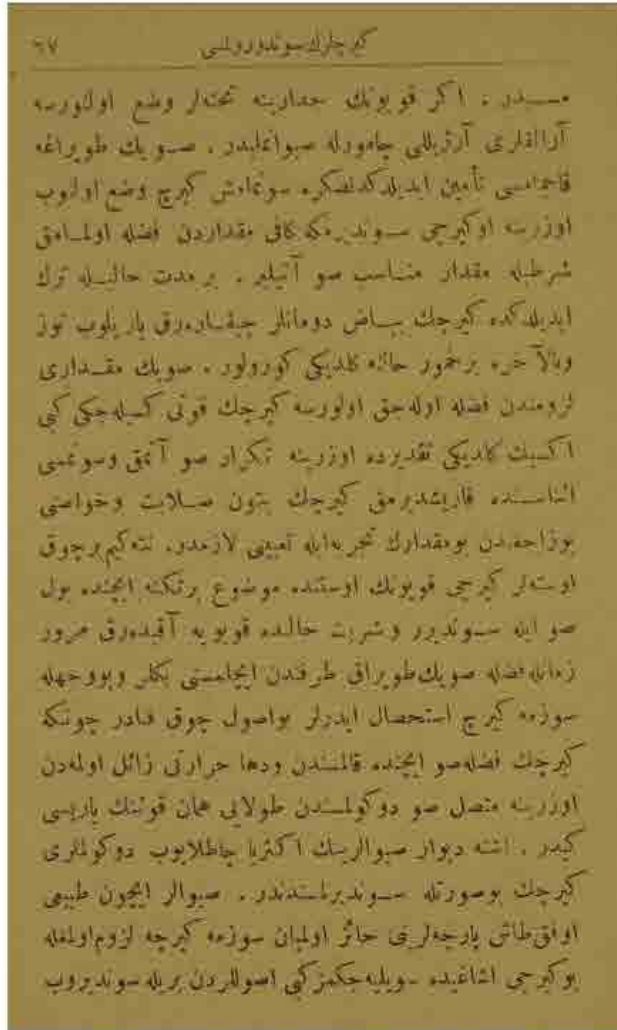 كيرجلرك سوندورولمسى ٦٧
مسيدر . اكر قويونك جدارينه تخته‌لر وضع اولنورسه
آرالقلرى آرژيللى چامورله صيوانمليدر . صويك طوپراغه
قاچمامسى تأمين ايديلدكدنصكره سونمامش كيرج وضع اولنوب
اوزرينه اوكيرجى سوندرمكه كافى مقداردن فضله اولمامق
شرطيله مقدار متناسب صو آتيلير . بر مدت حاليله ترك
ايديلدكده كيرجك بياض دومانلر چيقاره‌رق ياريلوب توز
وبالآخره بر خمور حالنه كلديكى كورولور . صويك مقدارى
لزومندن فضله اوله‌جق اولورسه كيرجك قوتى كسيله‌جكى كبى
اكسيك كلديكى تقديرده اوزرينه تكرار صو آتمق وسونمسى
اثناسنده قاريشديرمق كيرجك بتون صلابت وخواصنى
بوزاجغندن بومقدارك تجربه‌ايله تعيينى لازمدر. نته‌كيم برچوق
اوسته‌لر كيرجى قويونك اوستنده موضوع برتكنه ايچنده بول
صو ايله سونديرر وشربت حالنده قويويه آقيده‌رق مرور
زمانله‌فضله صويك‌طوپراق طرفندن ايچلمسنى بكلر وبووجهله
سوزمه كيرج استحصال ايدرلر بواصول چوق فنادر چونكه
كيرجك فضله‌صو ايچنده قالمسندن ودها حرارتى زائل اولمه‌دن
اوزرينه متصل صو دوكولمسندن طولايى همان قوتنك ياريسى
كيدر . اشته ديوار صيوالرينك اكثريا چاطلايوب دوكولملرى
كيرجك بوصورتله سونديرلمسندندر . صيوالر ايچون طبيعى
اوفق‌طاش پارچه‌لرينى حائز اولميان سوزمه كيرجه لزوم‌اولمغله
بوكيرجى اشاغيده سويليه‌جكمزكبى اصوللردن بريله سونديروب